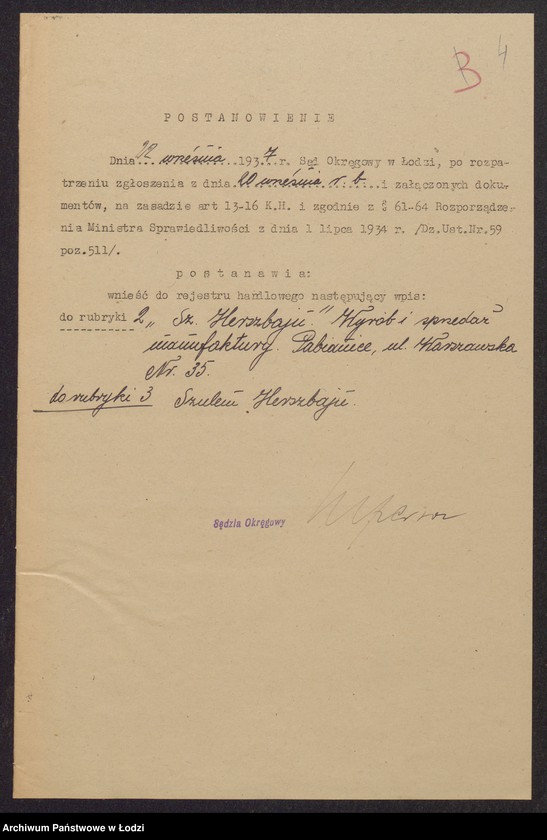 B 4
POSTANOWIENIE
Dnia 22 września 1937 r. Sąd Okręgowy w Łodzi, po rozpa-
trzeniu zgłoszenia z dnia 20 września r. b. i załączonych doku-
mentów, na zasadzie art 13-16 K.H. i zgodnie z §§ 61-64 Rozporządze-
nia Ministra Sprawiedliwości z dnia 1 lipca 1934 r. /Dz.Ust.Nr.59
poz.511/.
postanawia:
wnieść do rejestru handlowego następujący wpis:
do rubryki 2 „Sz. Herszbajn." Wyrób i sprzedaż
manufaktury. Pabianice, ul. Warszawska
Nr. 35.
do rubryki 3 Szulem Herszbajn.
Sędzia Okręgowy
Archiwum Państwowe w Łodzi